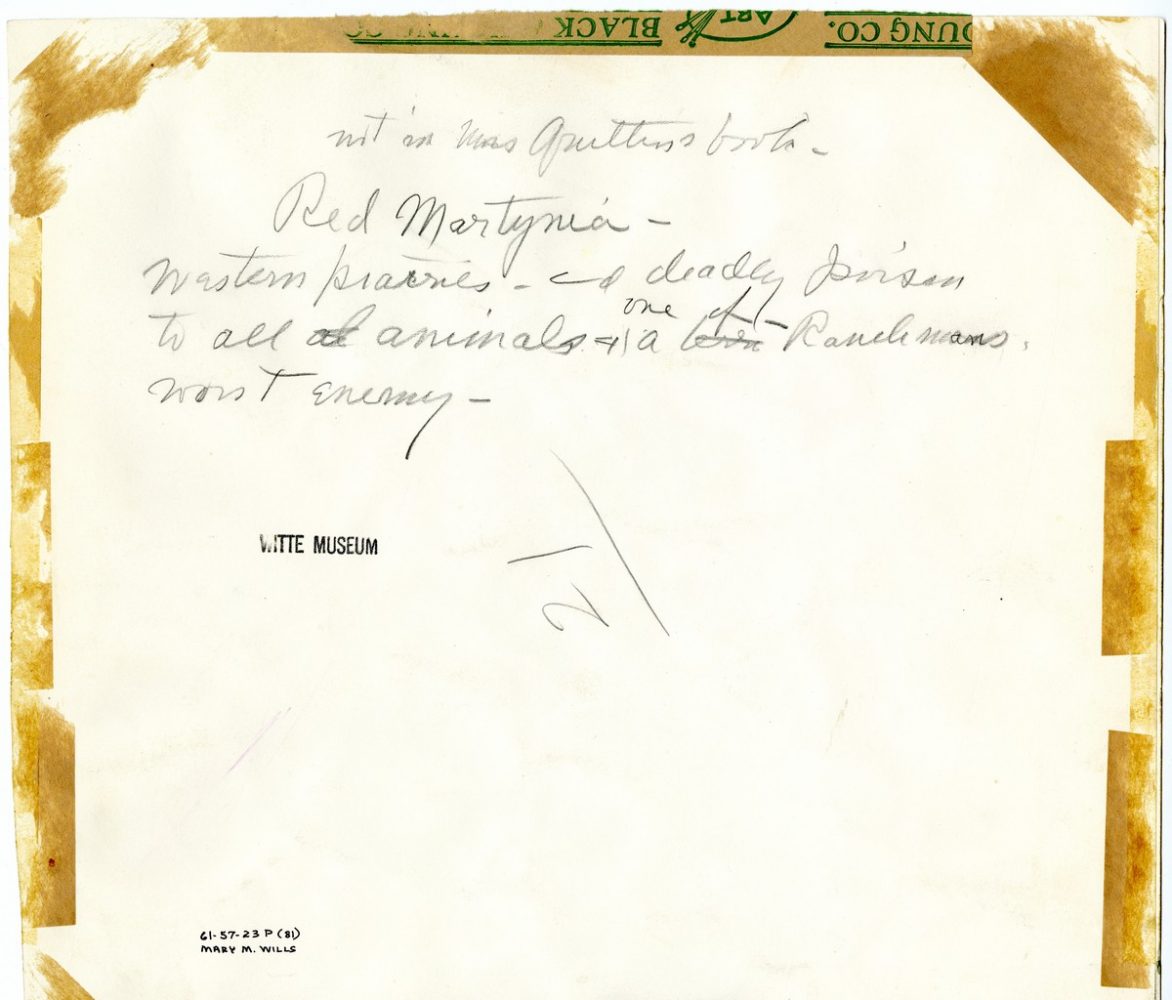 OUNG CO.
ART
BLACK
not in Mrs Quillins book -
Red Martynia -
Western prairies - a deadly Poison
one of
to all animals + a Ranchmans.
worst enemy -
WITTE MUSEUM
61-57-23 P (81)
MARY M. WILLS